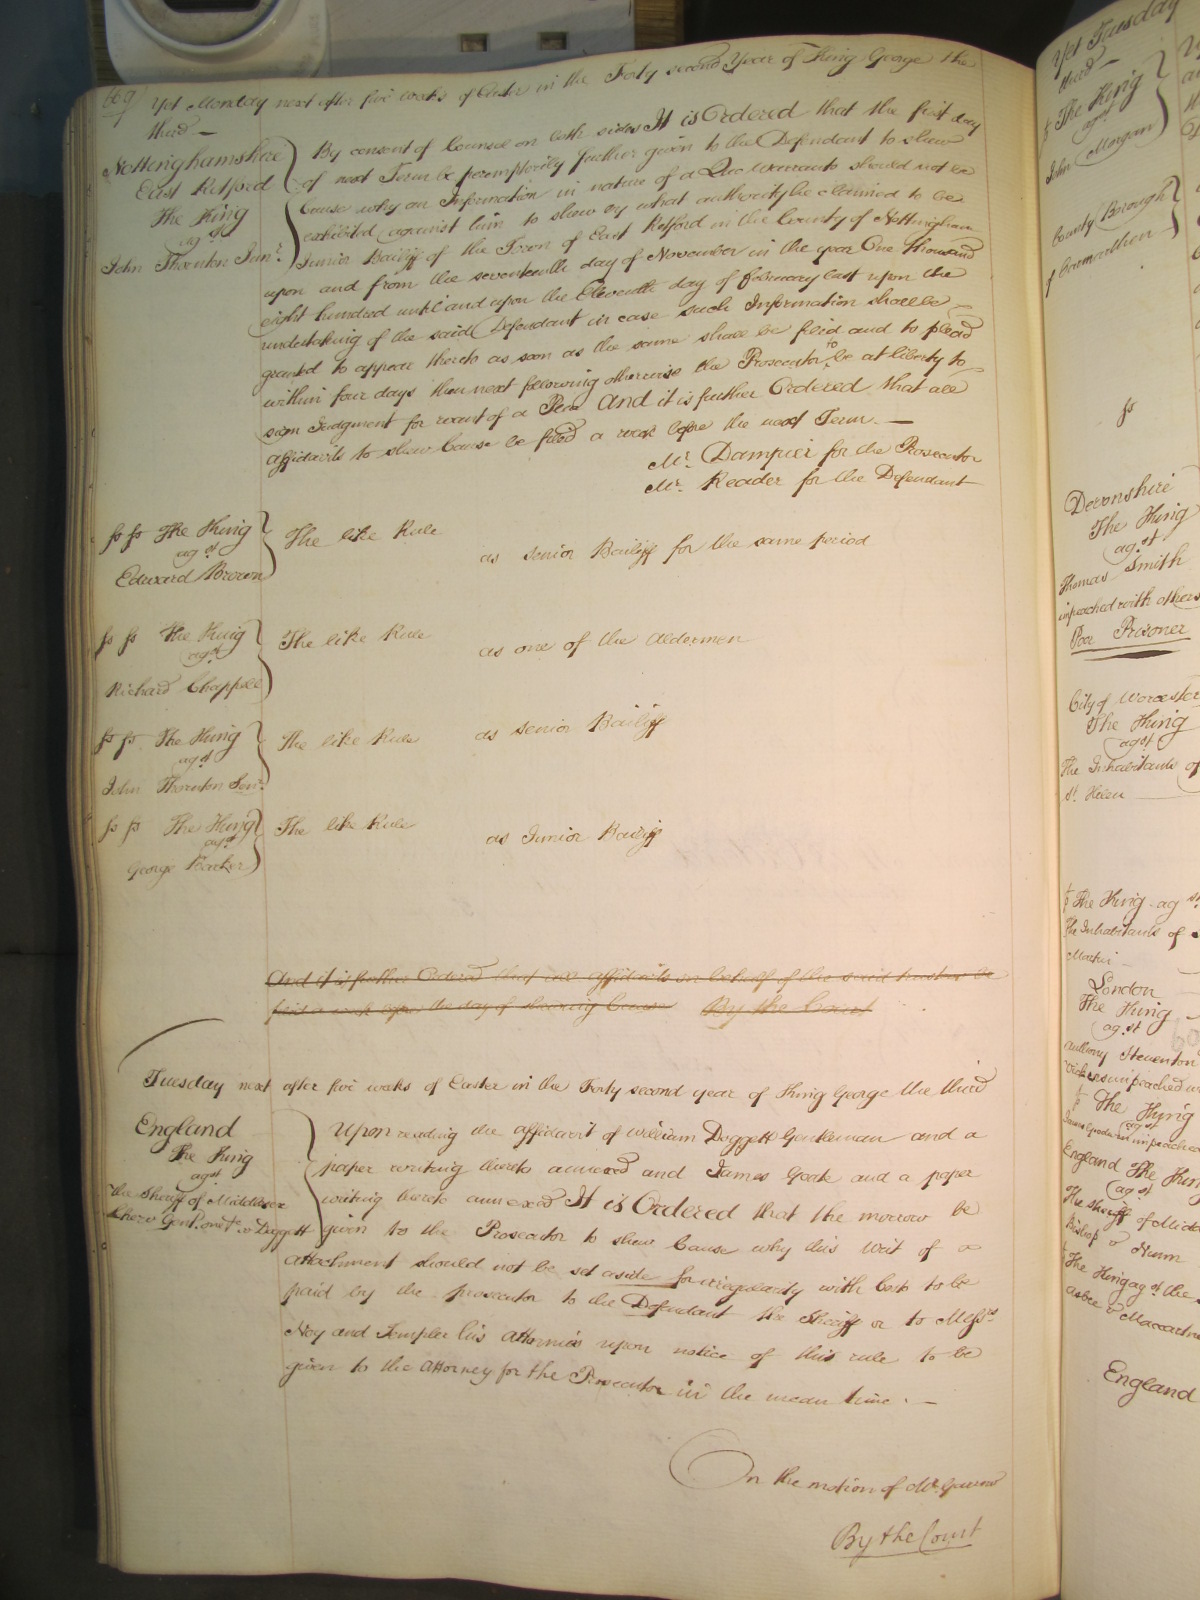 669
Yet Monday next after five weeks of Easter in the Forty second Year of King George the
third —
Nottinghamshire
East Retford
The King
agst
John Thornton Junr.
By consent of Counsel on both sides It is Ordered that the first day
of next Term be peremptorily further given to the Defendant to shew
Cause why an Information in nature of a Quo warranto should not be
exhibited against him to shew by what authority he claimed to be
Junior Bailiff of the Town of East Retford in the County of Nottingham
upon and from the seventeenth day of November in the year One thousand
eight hundred until and upon the Eleventh day of February last upon the
undertaking of the said Defendant in case such Information shall be
granted to appear thereto as soon as the same shall be filed and to plead
within four days then next following otherwise the Prosecutor to be at liberty to
sign Judgment for want of a Plea And it is further Ordered that all
affidavits to shew Cause be filed a week before the next Term. —
Mr. Dampier for the Prosecutor
Mr. Reader for the Defendant
ss ss The King
agst
Edward Brown
The like Rule as senior Bailiff for the same period
ss ss The King
agst
Richard Chapple
The like Rule as one of the Aldermen
ss ss The King
agst
John Thornton Senr.
The like Rule as senior Bailiff
ss ss The King
agst
George Barker
The like Rule as Junior Bailiff
And it is further Ordered that all affidavits on behalf of the said be
filed a week before the day of shewing Cause By the Court
Tuesday next after five weeks of Easter in the Forty second year of King George the third
England
The King
agst
The Sheriff of Middlesex
Gent. one &c v Daggett
Upon reading the affidavit of William Daggett Gentleman and a
paper writing thereto annexed and James Goak and a paper
writing thereto annexed It is Ordered that the morrow be
given to the Prosecutor to shew Cause why this Writ of a
attachment should not be set aside for irregularity with costs to be
paid by the prosecutor to the Defendant the Sheriff or to Messrs
Noy and Templer his Attornies upon notice of this rule to be
given to the Attorney for the Prosecutor in the mean time. —
On the motion of Mr. Garrow
By the Court
Yet Tuesday
third —
The King
agst
John Morgan
County Borough
of Carmarthen
ss
Devonshire
The King
agst
Thomas Smith
impeached with others
Poor Prisoner
City of Worcester
The King
agst
The Inhabitants of
St. Helen
The King agst
The Inhabitants of
London
The King
agst
Stewenton
The King
agst
England The King
agst
The Sheriff of
Bishop v Nunn
The King agst the
England